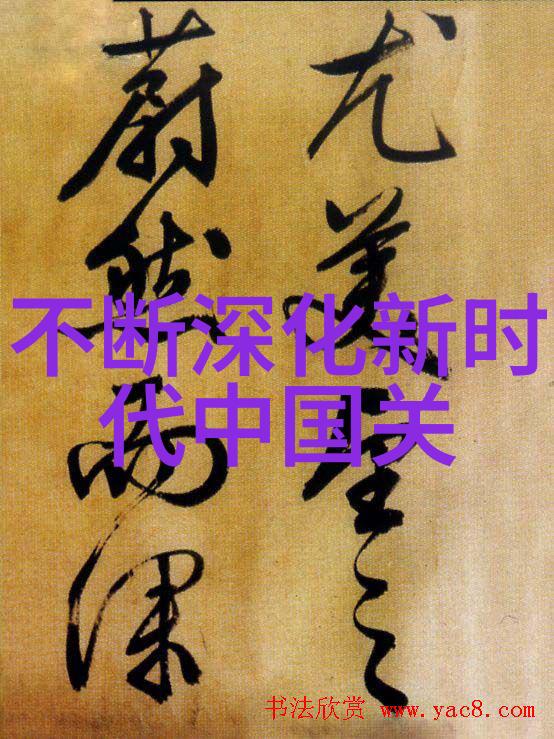 尤美望之
蔚然而深
不断深化新时
代中国关
书法欣赏 www.yac8.com